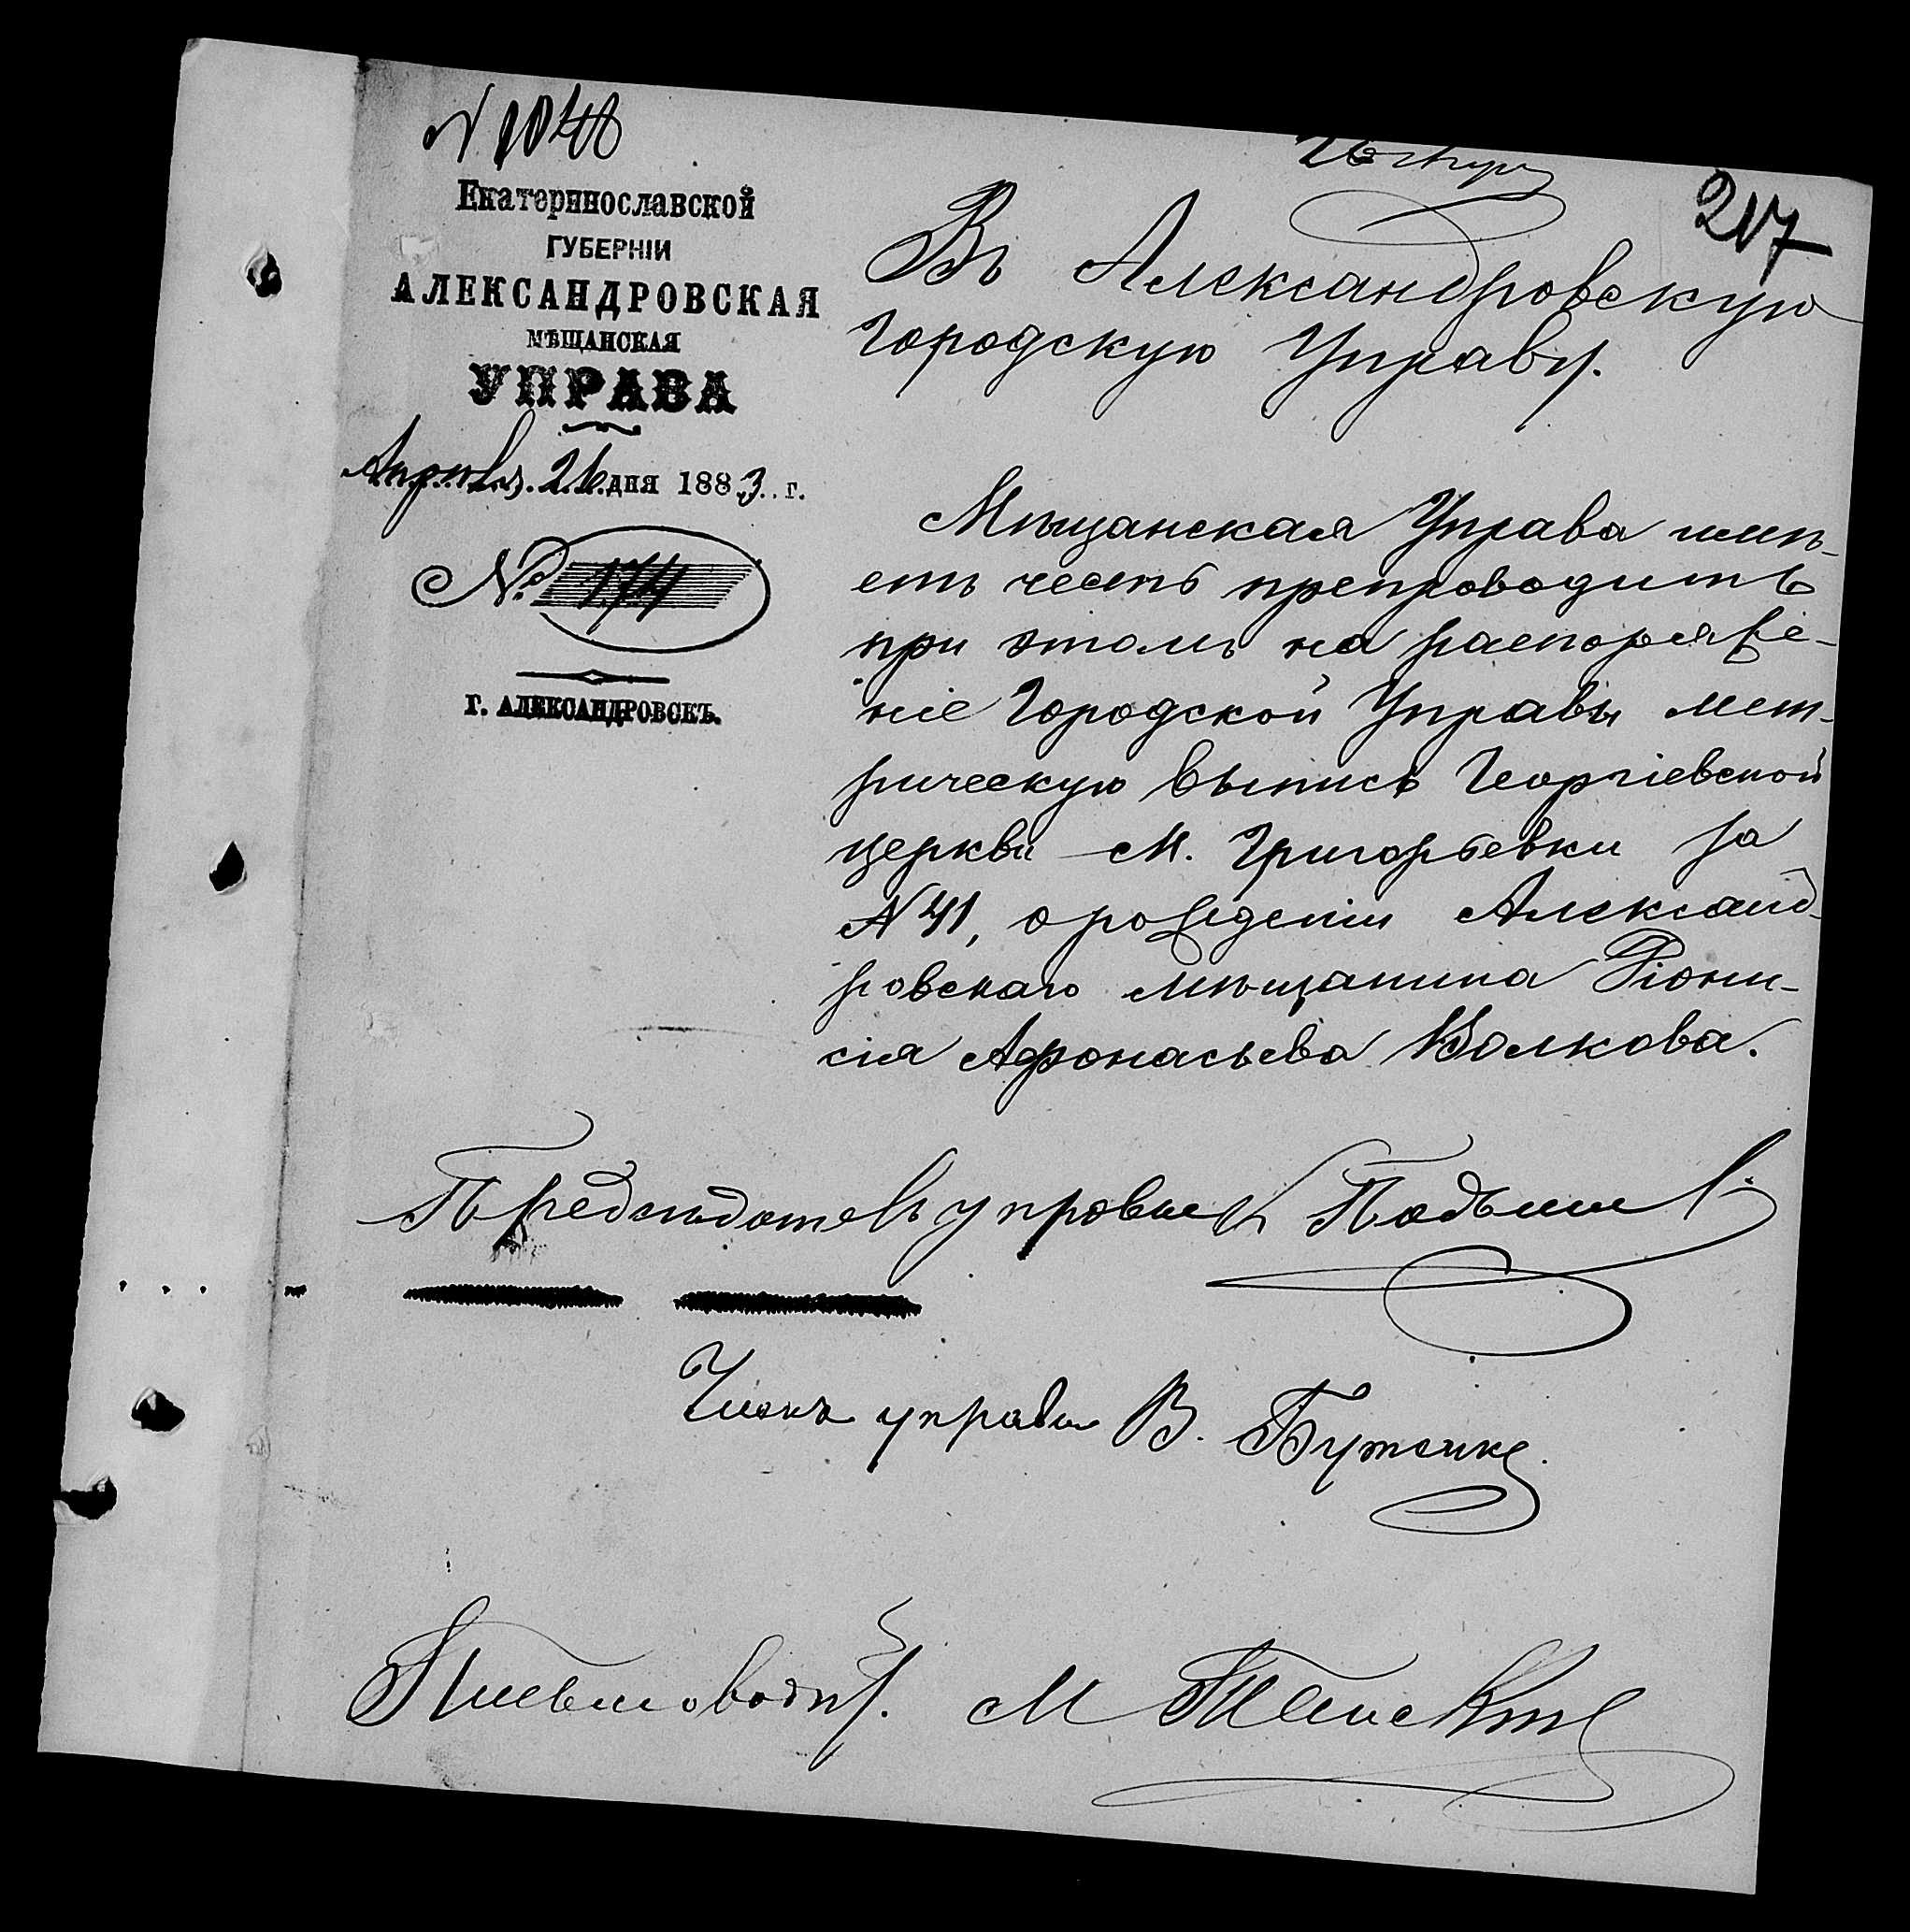 N 1048
26 Апр
217
Екатеринославской
ГУБЕРНІИ
АЛЕКСАНДРОВСКАЯ
МѢЩАНСКАЯ
УПРАВА
Апрѣля 26 дня 1883 г.
№ 174
Г. АЛЕКСАНДРОВСКЪ.
Въ Александровскую
Городскую Управу.
Мѣщанская Управа имѣ-
етъ честь препроводить
при этомъ на распоряже-
ніе Городской Управы мет-
рическую выпись Георгіевской
церкви М. Григорьевки за
N 41, о рожденіи Александ-
ровскаго мѣщанина Діони-
сія Афонасьева Волкова.
Председатель управы
Членъ управы В. Бутенко
Письмоводит. М